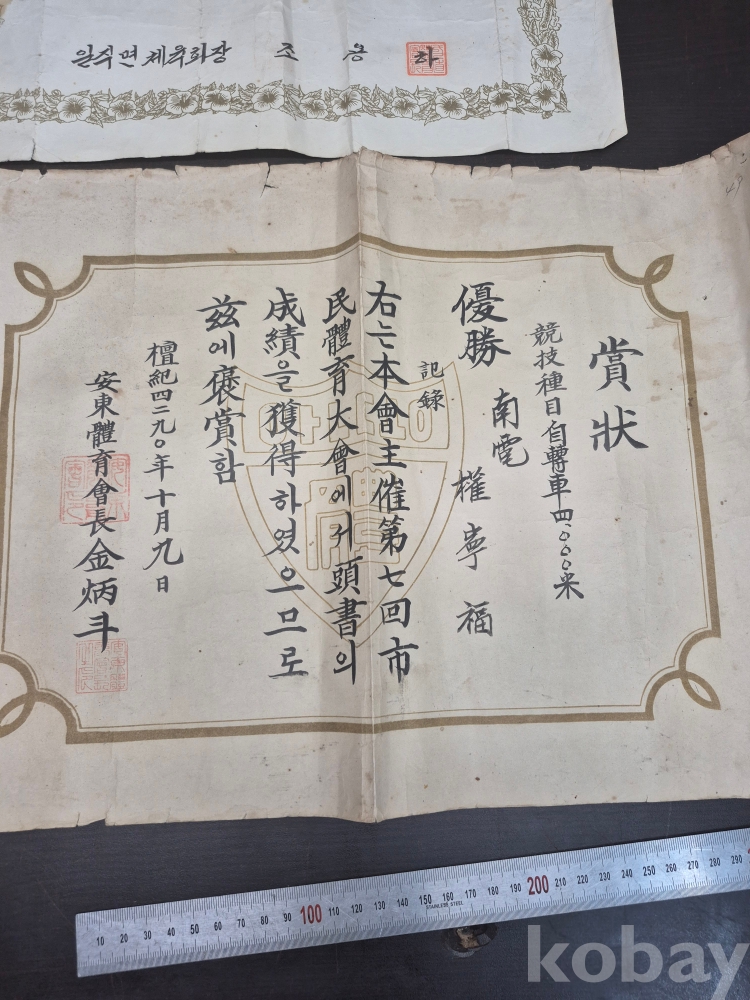 일직면체육회장 조 용 하
賞狀
競技種目 自轉車 四,〇〇〇米
優勝 南電 權寧福
記錄
右는本會主催第七回市
民體育大會에서頭書의
成績을獲得하였으므로
玆에褒賞함
檀紀四二九〇年十月九日
安東體育會長金炳斗
10 20 30 40 50 60 70 80 90 100 110 120 130 140 150 160 170 180 190 200 210 220 230 240 250 260 270 280 290
STAINLESS STEEL
kobay